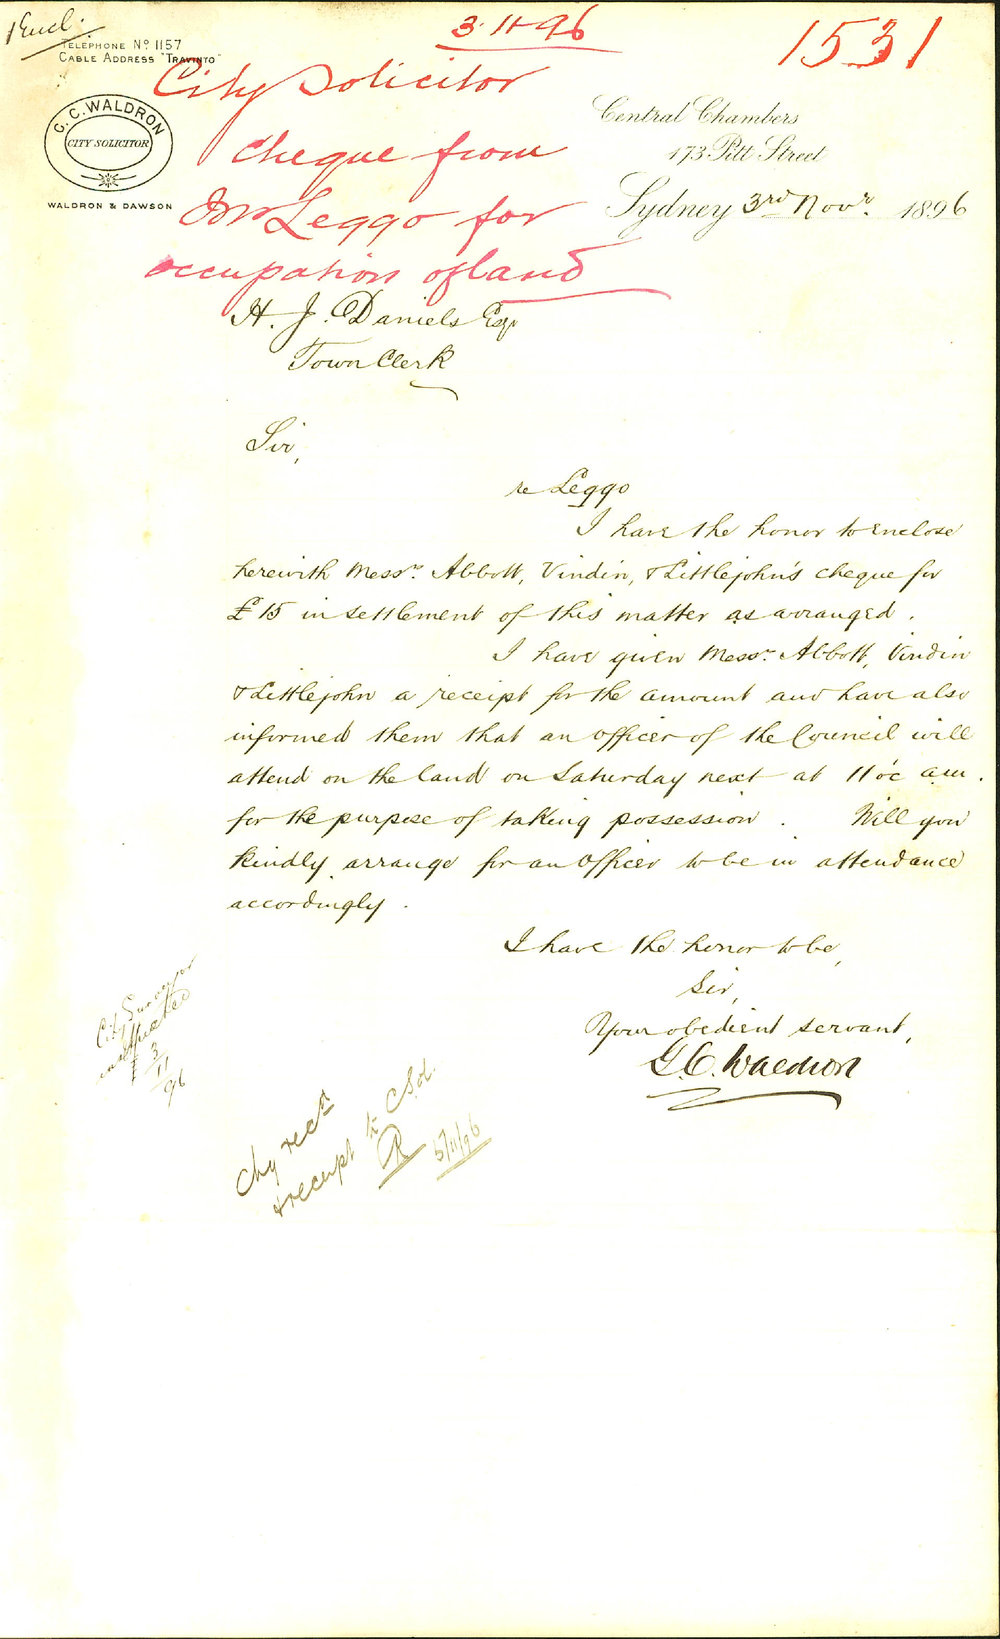 1 Encl.
3.11.96
1531
TELEPHONE No 1157
CABLE ADDRESS "TRAVINTO"
G. C. WALDRON
CITY SOLICITOR
WALDRON & DAWSON
City Solicitor
Cheque from
Mr Leggo for
occupation of land
Central Chambers
173 Pitt Street
Sydney 3rd Novr. 1896
H. J. Daniels Esqr
Town Clerk
Sir,
re Leggo
I have the honor to enclose
herewith Messrs. Abbott, Vindin, & Littlejohn's cheque for
£15 in settlement of this matter as arranged.
I have given Messrs. Abbott, Vindin
& Littlejohn a receipt for the amount and have also
informed them that an officer of the Council will
attend on the land on Saturday next at 11 o'c a.m.
for the purpose of taking possession. Will you
kindly arrange for an officer to be in attendance
accordingly.
I have the honor to be,
Sir,
Your obedient servant,
G. C. Waldron
City Surveyor
instructed
3/11/96
Chq recd
& receipt to C Sol.
R 5/11/96